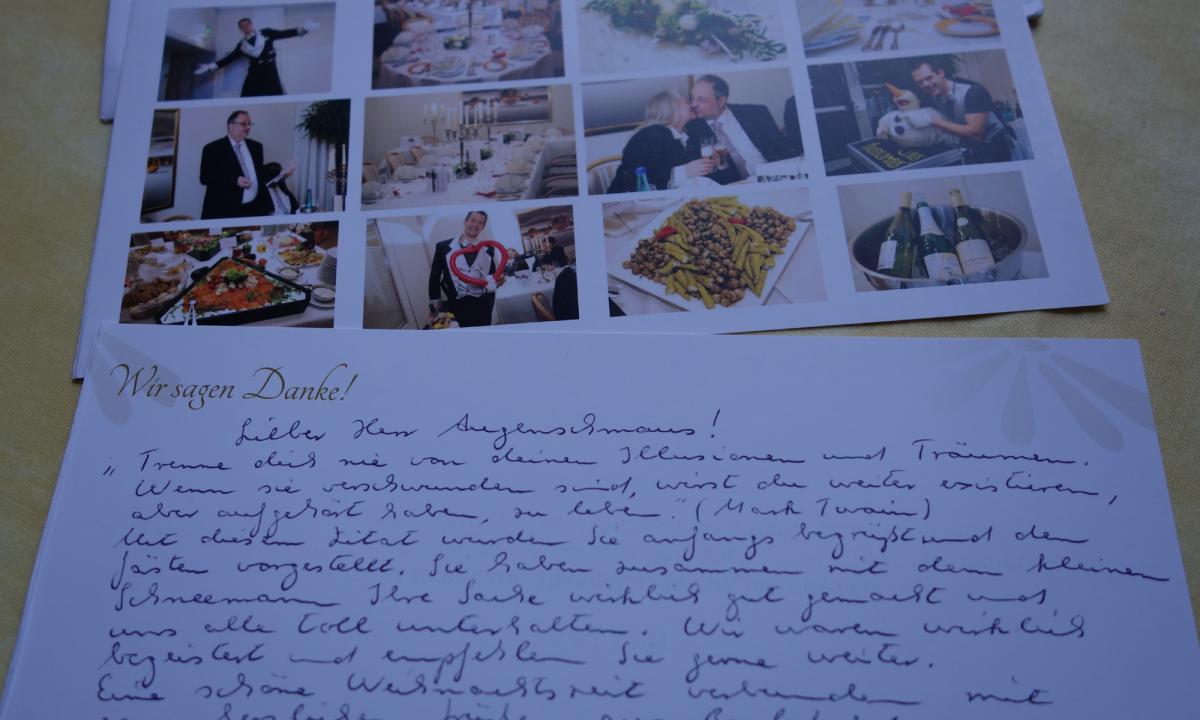 Wir sagen Danke!
Lieber Herr Augenschmaus!
„Trenne dich nie von deinen Illusionen und Träumen.
Wenn sie verschwunden sind, wirst du weiter existieren,
aber aufgehört haben, zu leben." (Mark Twain)
Mit diesem Zitat wurden Sie anfangs begrüßt und den
Gästen vorgestellt. Sie haben zusammen mit dem kleinen
Schneemann Ihre Sache wirklich gut gemacht und
uns alle toll unterhalten. Wir waren wirklich
begeistert und empfehlen Sie gerne weiter.
Eine schöne Weihnachtszeit verbunden mit